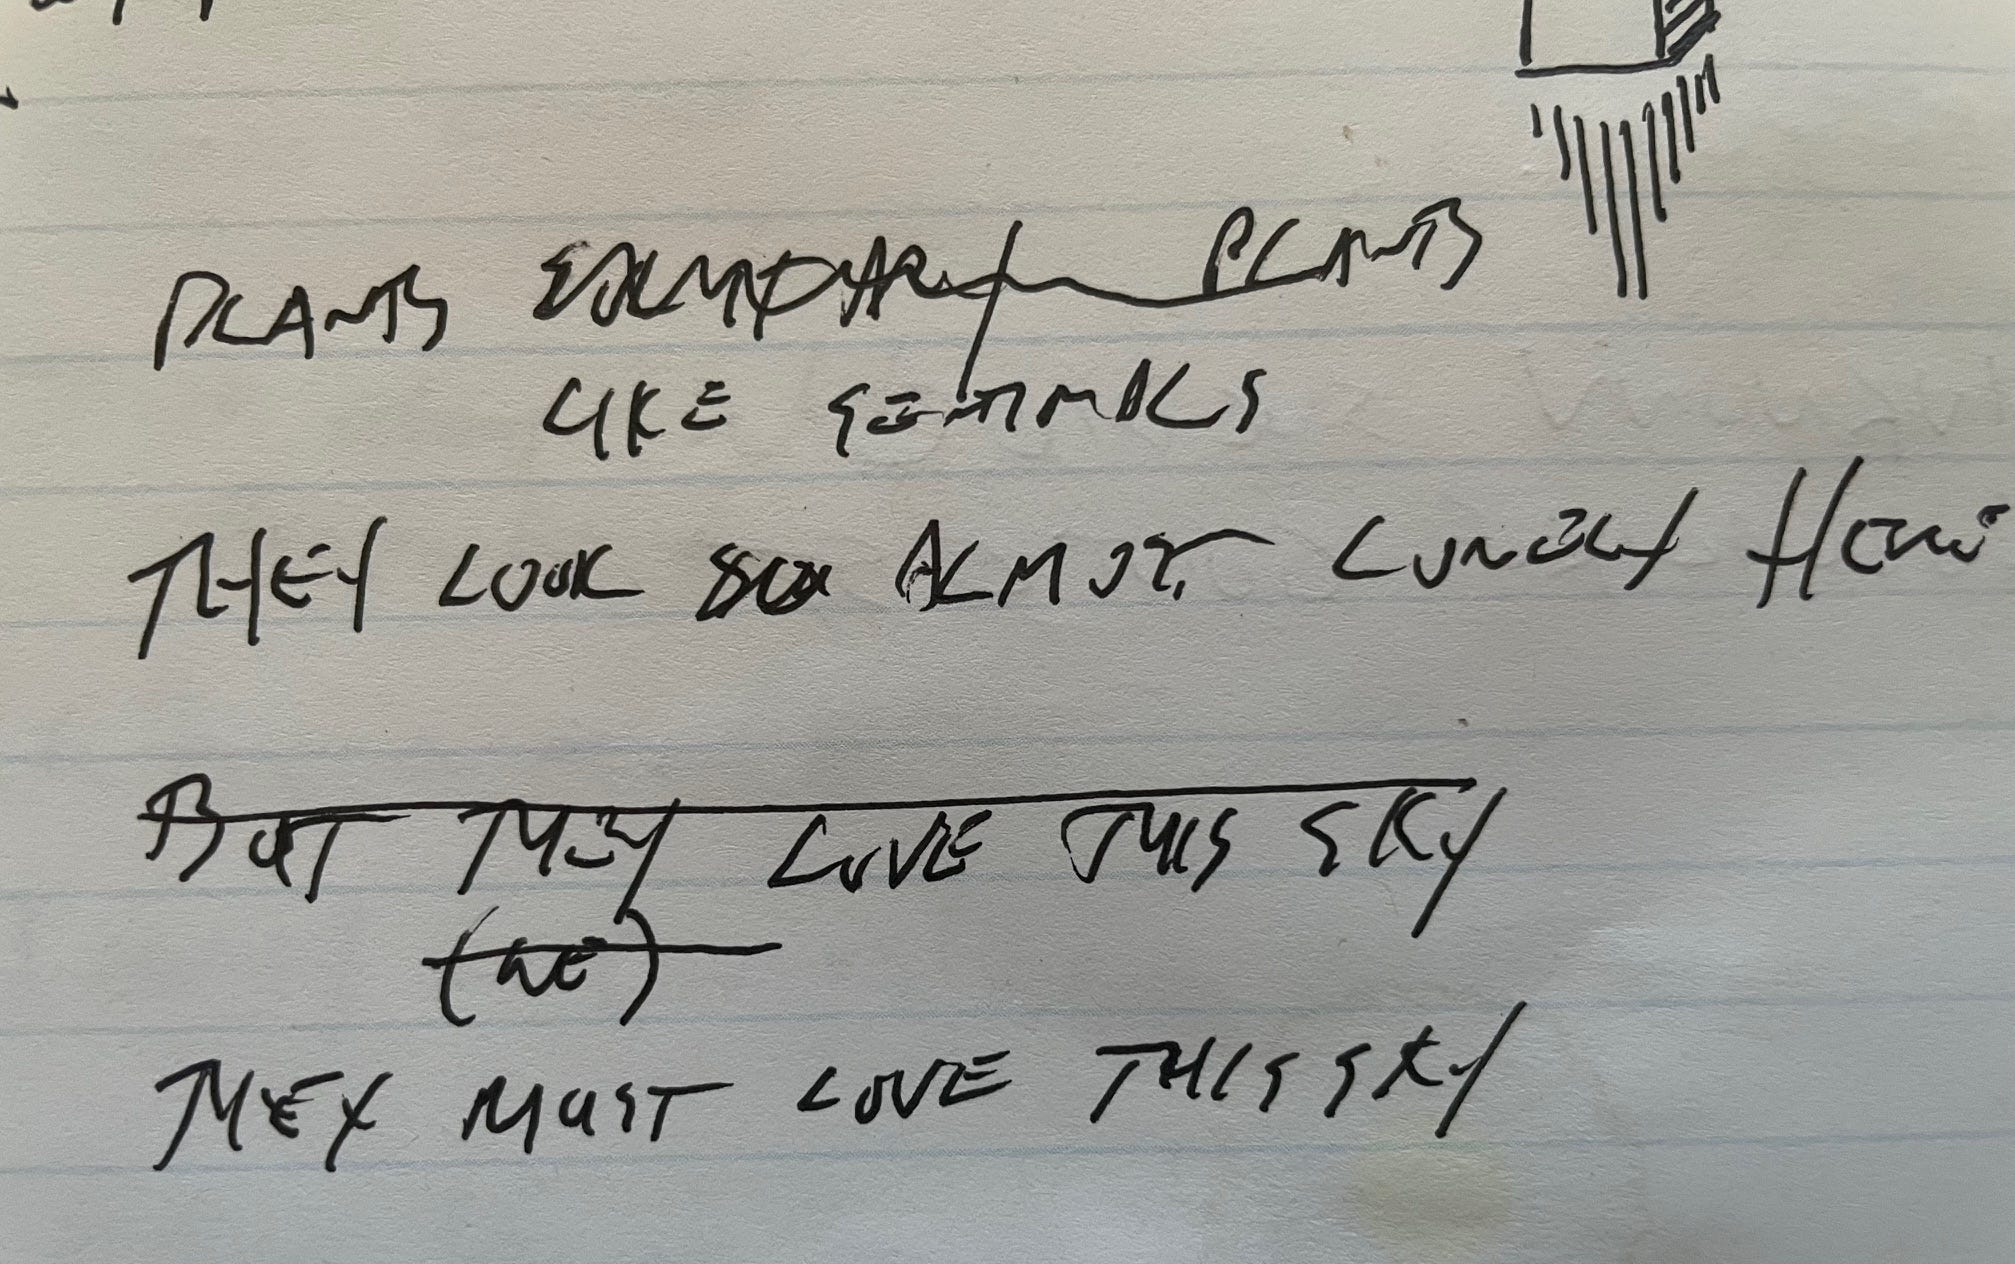 PLANTS SOLITARY PLANTS
LIKE SENTINALS
THEY LOOK SO ALMOST LONELY HERE
BUT THEY LOVE THIS SKY
(WE)
THEY MUST LOVE THIS SKY